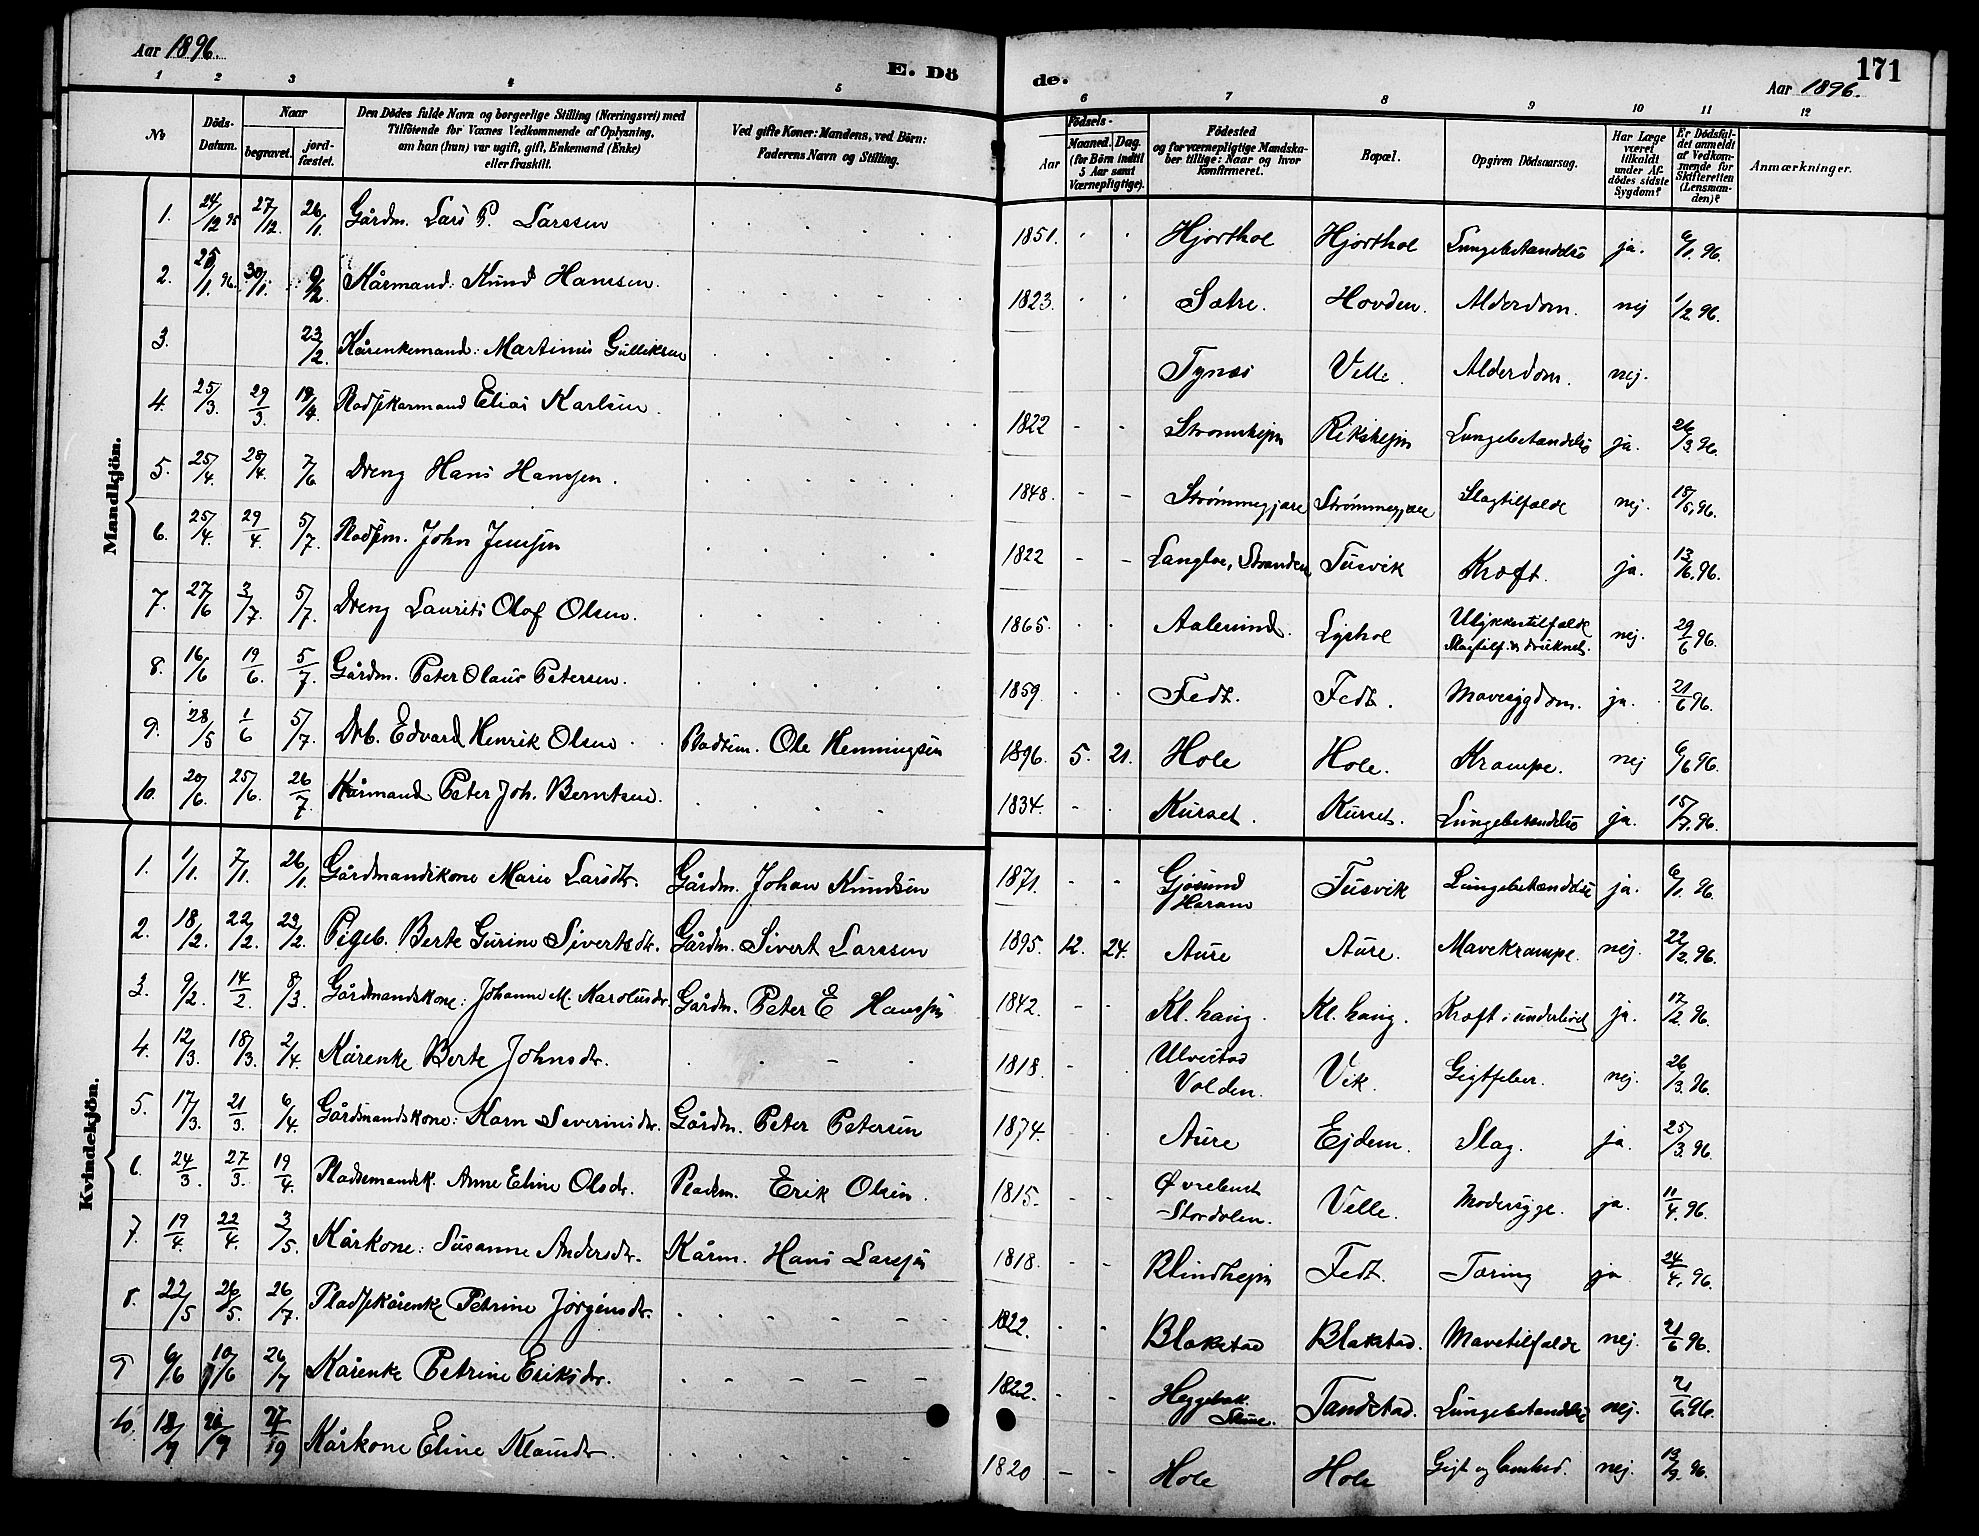 Aar 1896.
E. Dö
de.
171
Aar 1896.
1 2 3 4 5 6 7 8 9 10 11 12
No
Döds-Datum.
Naar
begravet. jord-fæstet.
Den Dödes fulde Navn og borgerlige Stilling (Næringsvei) med
Tilföiende for Voxnes Vedkommende af Oplysning,
om han (hun) var ugift, gift, Enkemand (Enke)
eller fraskilt.
Ved gifte Koner: Mandens, ved Börn:
Faderens Navn og Stilling.
Födsels-
Aar Maaned. Dag.
(for Börn indtil
5 Aar samt
Værnepligtige).
Födested
og for værnepligtige Mandska-
ber tillige: Naar og hvor
konfirmeret.
Bopæl.
Opgiven Dödsaarsag.
Har Læge
været
tilkaldt
under Af-
dödes sidste
Sygdom?
Er Dödsfal-
det anmeldt
af Vedkom-
mende for
Skifteretten
(Lensman-
den)?
Anmærkninger.
Mandkjön.
1. 24/12 95 27/12. 26/1. Gårdm. Lars P. Larssen 1851. Hjorthol Hjorthol Lungebetændelse ja. 6/1. 96.
2. 25/1. 96. 30/1. 9/2 Kårmand: Knud Hanssen. 1823. Sætre. Hovden. Alderdom. nej 1/2. 96.
3. 23/2. Kårenkemand: Martinus Gulliksen Tynes Velle. Alderdom. nej.
4. 25/3. 29/3. 19/4 Pladskarmand Elias Karlsen. 1822 Strømshejm Rikshejm Lungebetændelse ja. 26/3. 96.
5. 25/4. 28/4. 7/6 Dreng Hans Hansen. 1848. Strømmegjære Strømmegjære Slagtilfælde nej. 15/5. 96.
6. 25/4. 29/4. 5/7. Pladsm. John Jensen 1822 Langloe, Stranden Tusvik Kræft. ja. 13/6. 96.
7. 27/6 3/7. 5/7. Dreng Laurits Olaf Olsen. 1865. Aalesund. Lyshol Ulykkestilfælde nej. 29/6 96.
8. 16/6 19/6. 5/7. Gårdm. Peter Olaus Petersen. 1859. Fedt. Fedt. Mavesygdom. ja. 21/6 96.
9. 28/5 1/6 5/7. Drb. Edvard Henrik Olsen Pladsm. Ole Henningsen 1896. 5. 21. Hole Hole. Krampe. nej 6/6 96.
10. 20/6. 25/6. 26/7. Kårmand Peter Joh. Berntsen. 1834. Kurset. Kurset. Lungebetændelse ja. 15/7. 96.
Kvindekjön.
1. 1/1. 7/1. 26/1. Gårdmandskone Marie Larsdtr. Gårdm. Johan Knudsen 1871. Gjøsund Haram Tusvik Lungebetændelse ja. 6/1. 96.
2. 18/2. 22/2. 23/2. Pigeb. Berte Gurine Sivertsdtr. Gårdm. Sivert Larssen 1895. 12. 24. Aure Aure. Mavekrampe. nej. 22/2. 96.
3. 9/2. 14/2. 8/3. Gårdmandskone: Johanne M. Karolusdtr. Gårdm. Peter E Hanssen 1842. Kl. haug. Kl. haug. Kræft i underlivet ja. 17/2. 96.
4. 12/3. 18/3. 2/4. Kårenke Berte Johnsdtr. 1818. Ulvestad Volden. Vik. Gigtfeber. nej. 26/3. 96.
5. 17/3. 21/3. 6/4. Gårdmandskone: Karn Severinsdtr. Gårdm. Peter Petersen 1874. Aure Ejdem. Slag. ja. 25/3. 96.
6. 24/3. 27/3. 19/4. Pladsemandsk. Anne Eline Olsdr. Pladsm. Erik Olsen. 1815. Øvrebust Stordalen. Velle. Modersyge. ja. 11/4. 96.
7. 19/4. 22/4. 3/5. Kårkone: Susanne Andersdtr. Kårm. Hans Larssen 1818. Blindhejm Fedt. Tæring ja 24/4. 96.
8. 22/5 26/5. 26/7. Pladskårenke Petrine Jørgensdtr. 1822. Blakstad Blakstad. Mavetilfælde nej. 21/6 96.
9 6/6 10/6 26/7 Kårenke Petrine Eriksdtr. 1822. Heggebak. Tandstad. Lungebetændelse nej. 21/6. 96.
10. 18/9 21/9 27/9 Kårkone Eline Klausdtr. 1820 Hole Hole Gigt og nej. 13/9. 96.